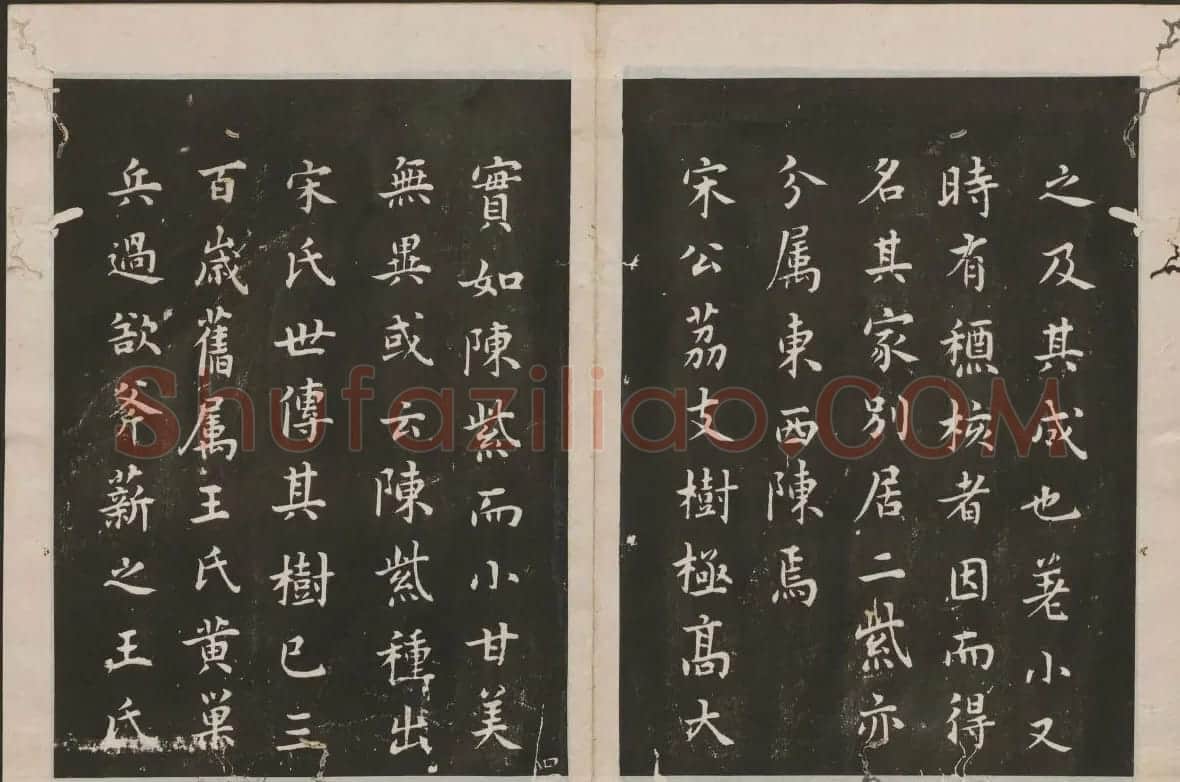 之及其成也差小又
時有穗核者因而得
名其家別居二紫亦
分属東西陳焉
宋公茘支樹極髙大
實如陳紫而小甘美
無異或云陳紫種出
宋氏世傳其樹已三
百歲舊属王氏黄巢
兵過欲斧薪之王氏
四
Shufaziliao.COM